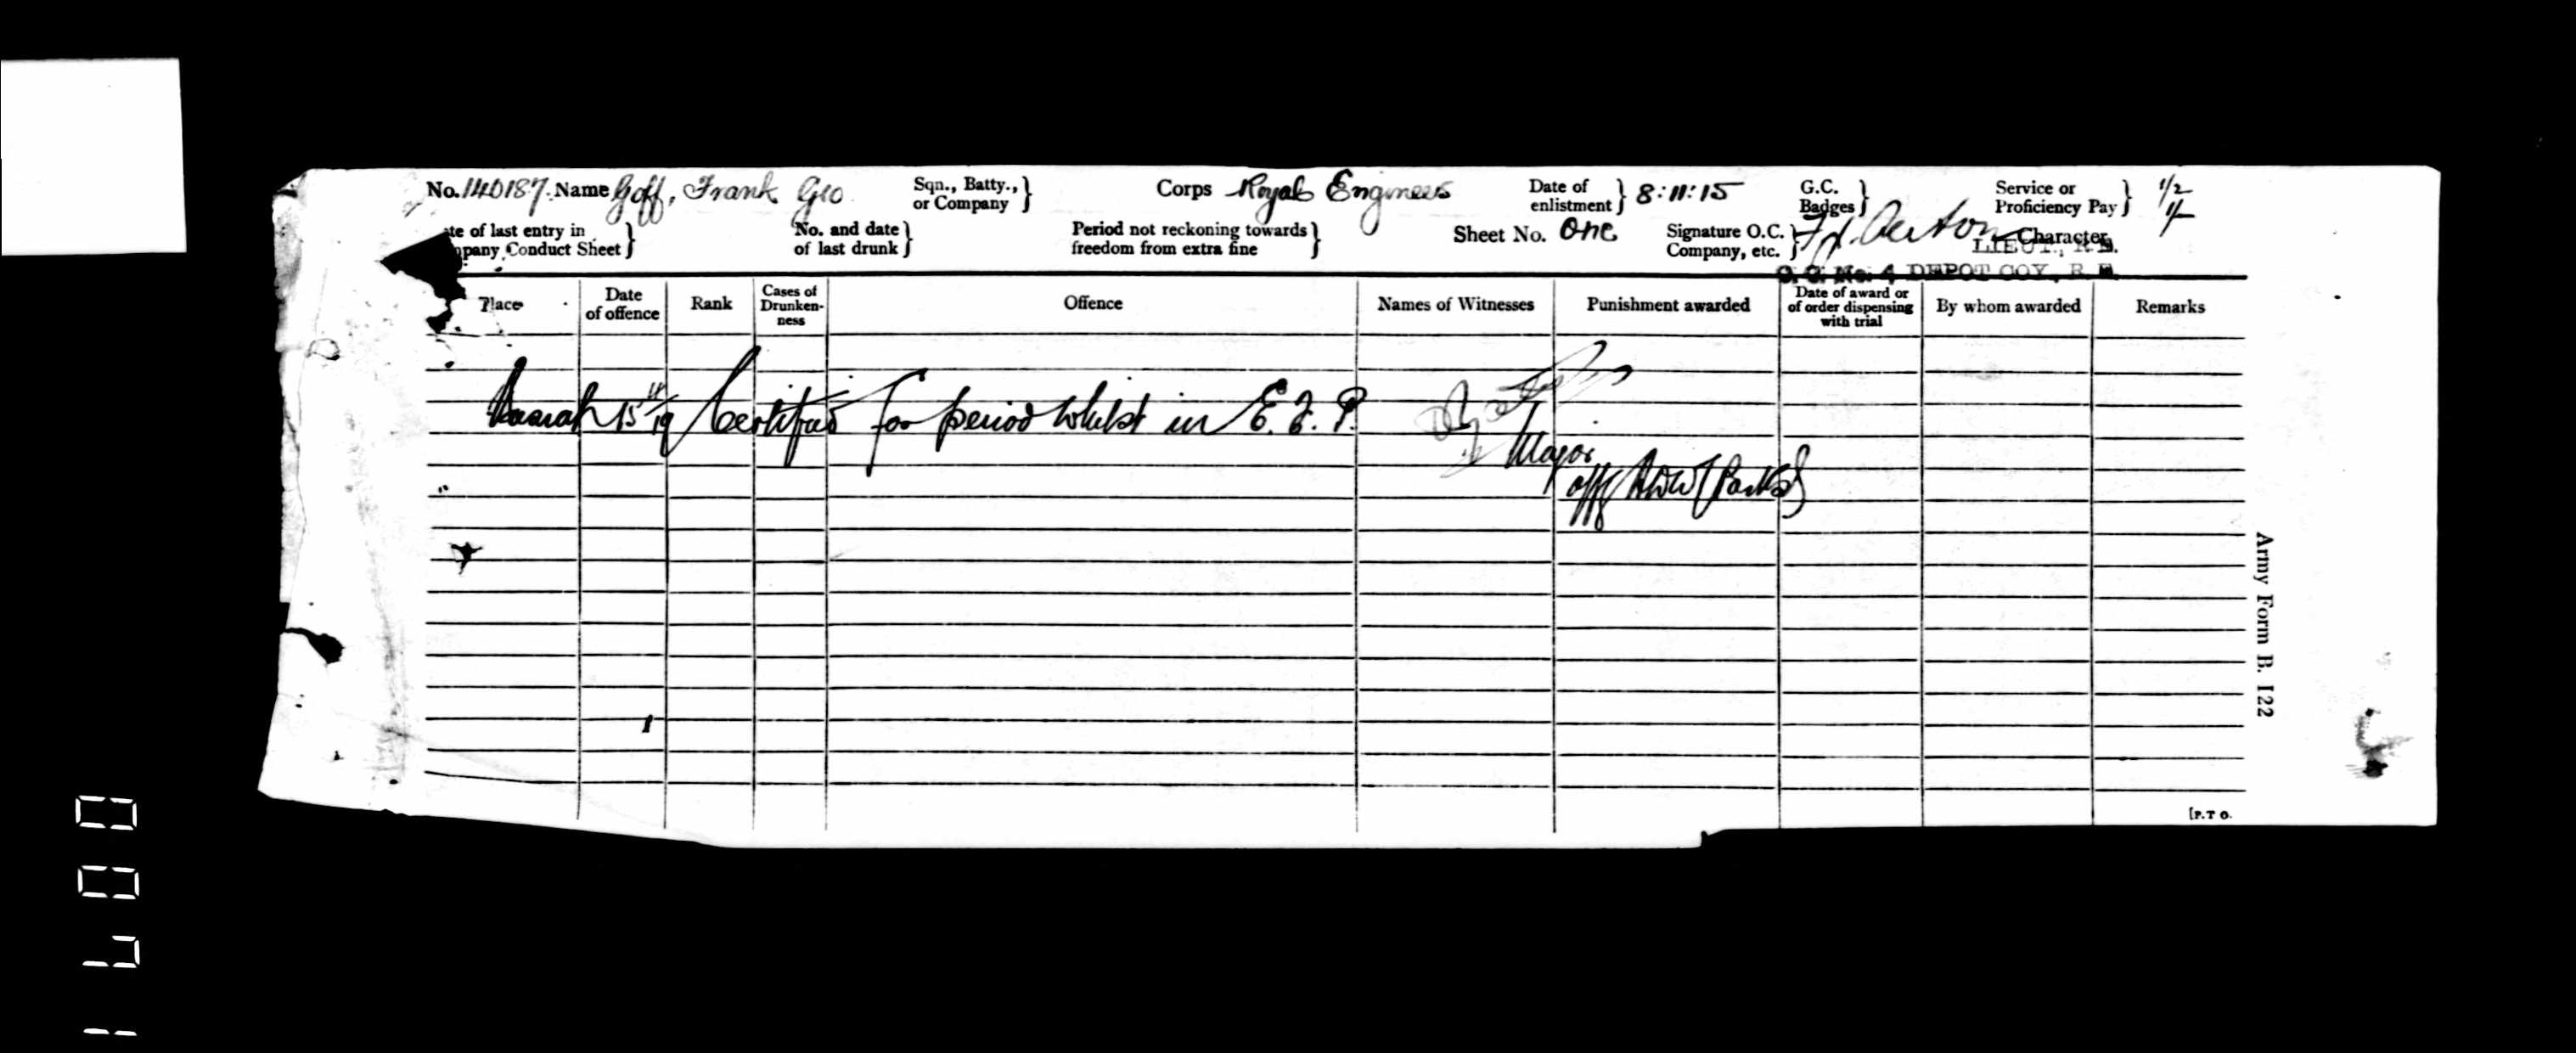 No. 140187. Name Goff, Frank Geo Sqn., Batty., or Company } Corps Royal Engineers Date of enlistment } 8:11:15 G.C. Badges } Service or Proficiency Pay } 1/2
te of last entry in pany Conduct Sheet } No. and date of last drunk } Period not reckoning towards freedom from extra fine } Sheet No. One Signature O.C. Company, etc. } Character
LIEUT., R.E.
O. C. No. 4 DEPOT COY, R.E.
Place Date of offence Rank Cases of Drunken-ness Offence Names of Witnesses Punishment awarded Date of award or of order dispensing with trial By whom awarded Remarks
15 Certified for period whilst in E. F. P.
Major
Army Form B. 122
[P.T O.